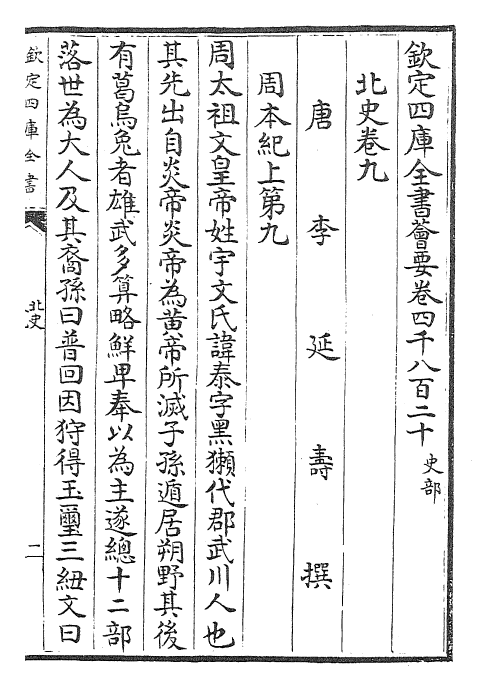 欽定四庫全書薈要卷四千八百二十 史部
北史卷九
唐 李 延 壽 撰
周本紀上第九
周太祖文皇帝姓宇文氏諱泰字黑獺代郡武川人也
其先出自炎帝炎帝為黄帝所滅子孫遁居朔野其後
有葛烏兔者雄武多算略鮮卑奉以為主遂總十二部
落世為大人及其裔孫曰普回因狩得玉璽三紐文曰
欽定四庫全書
北史
二